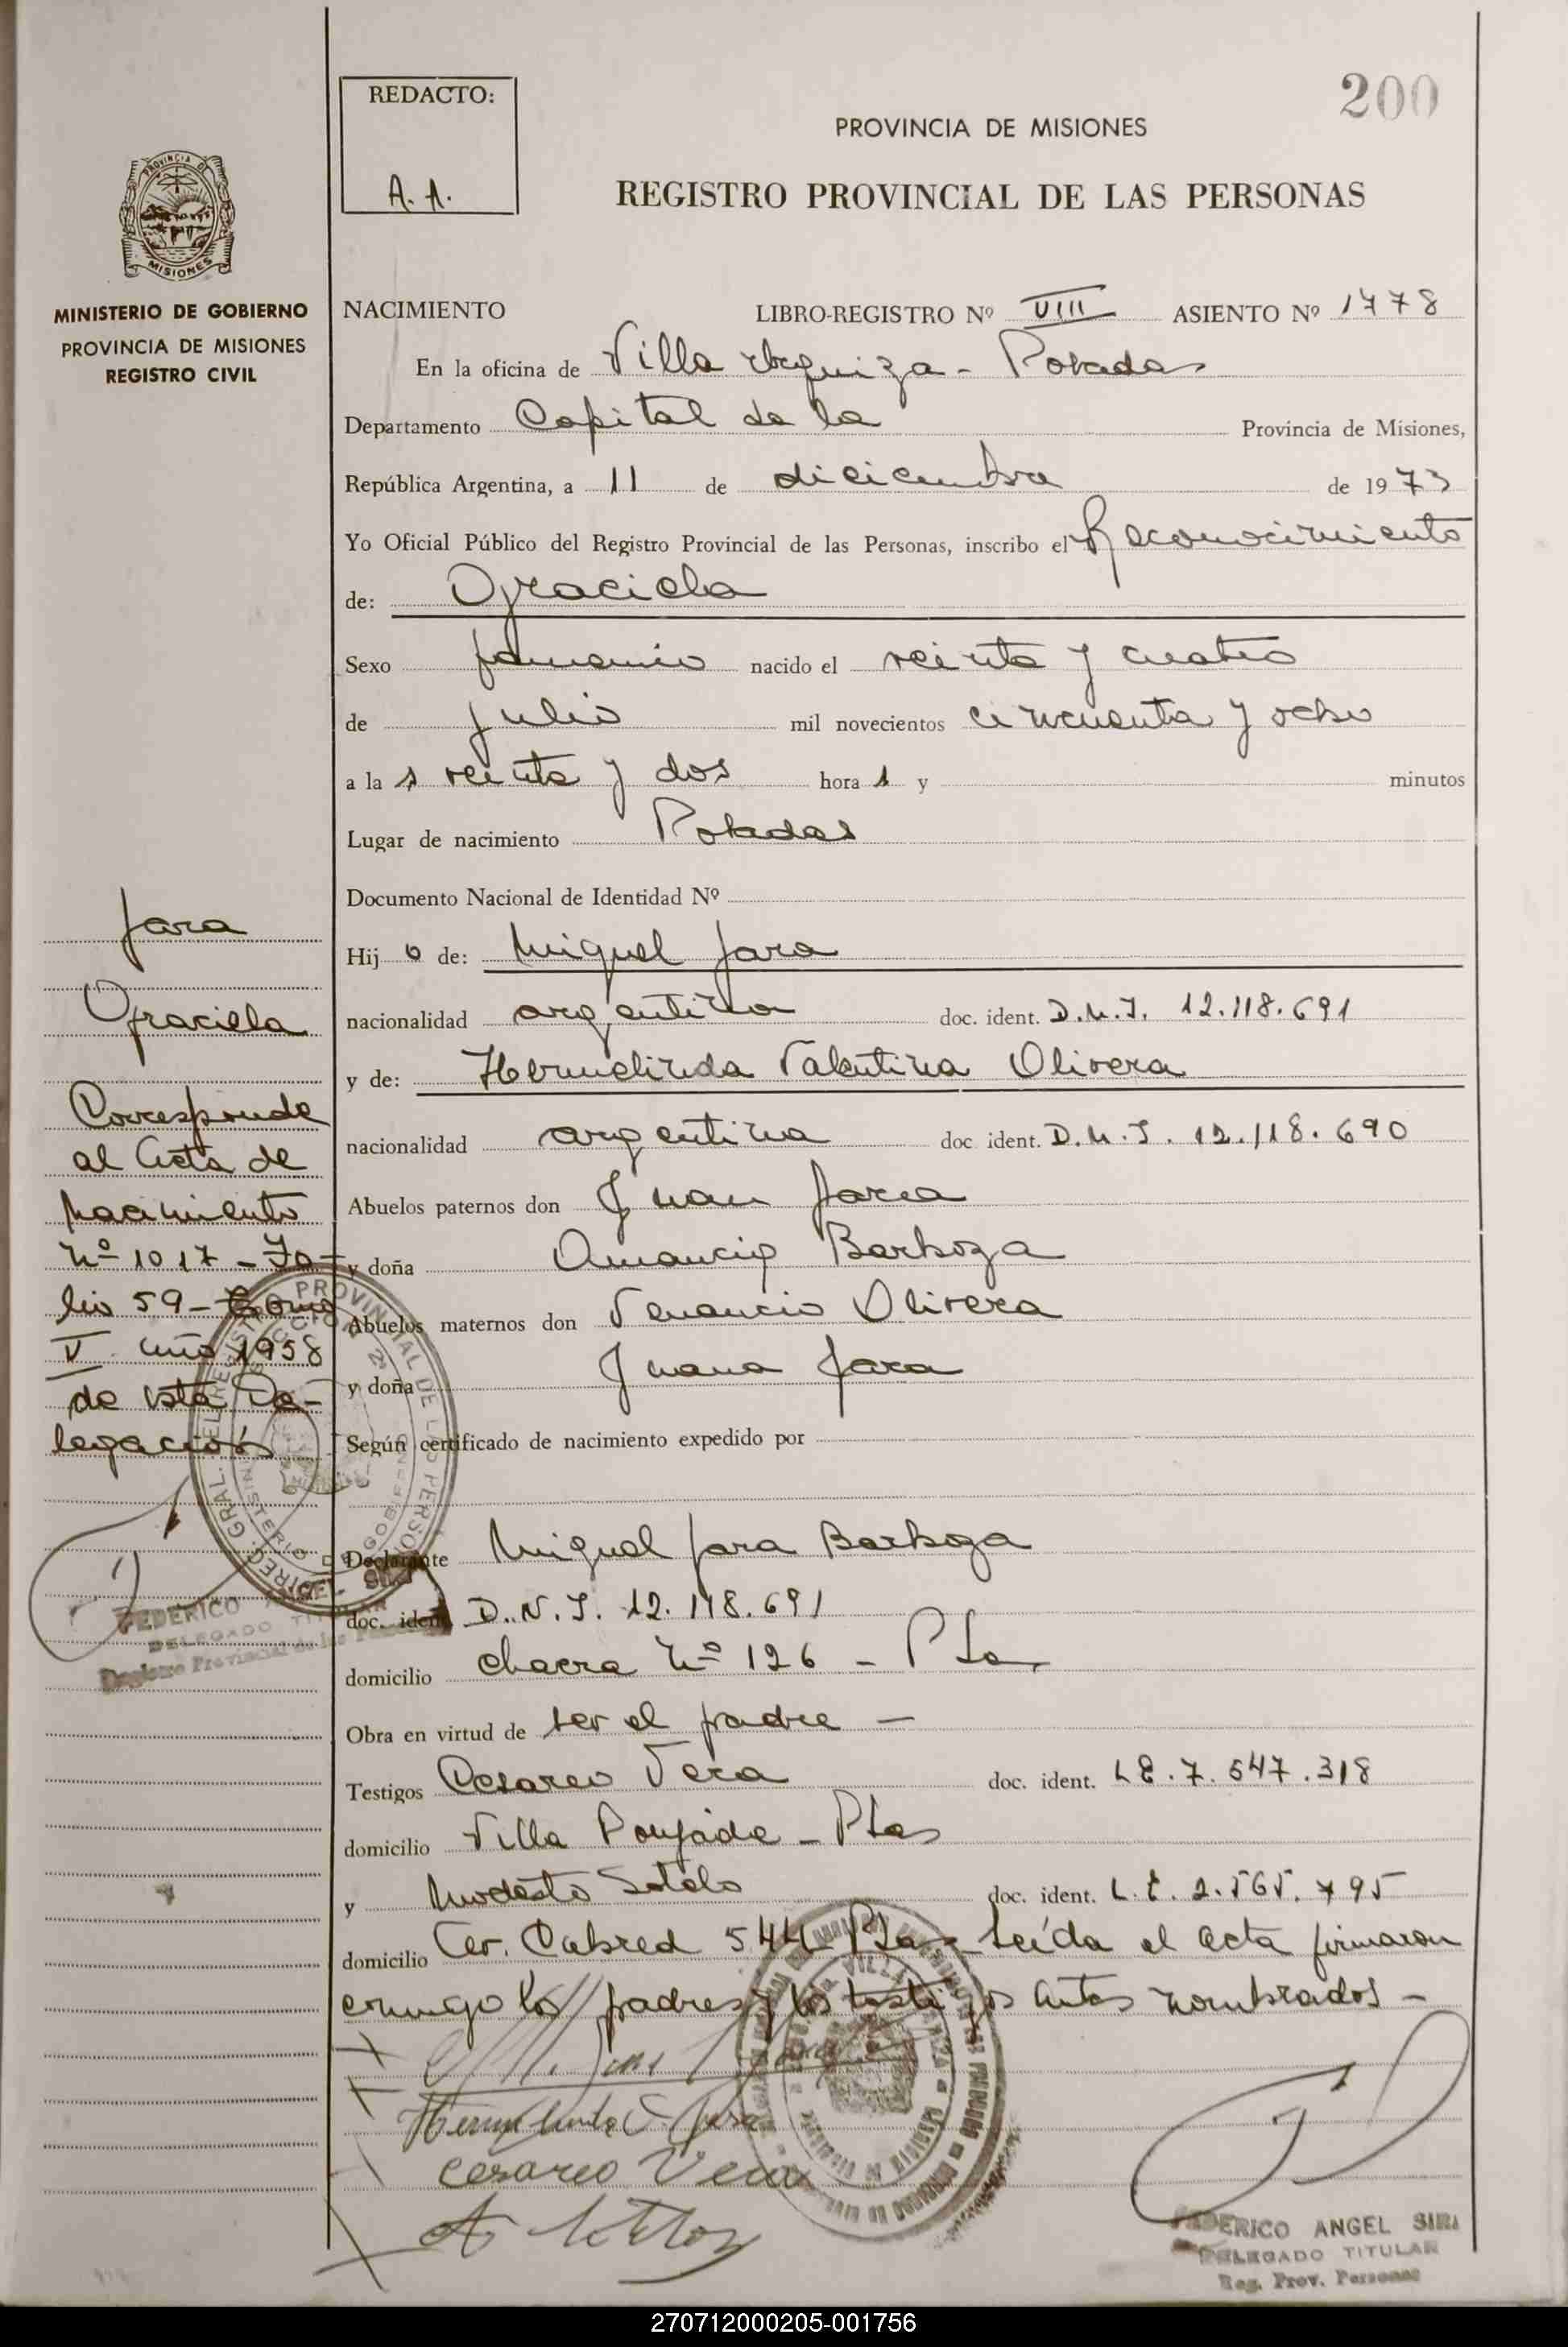 200
REDACTO:
A. A.
PROVINCIA DE MISIONES
REGISTRO PROVINCIAL DE LAS PERSONAS
PROVINCIA DE
MISIONES
MINISTERIO DE GOBIERNO
PROVINCIA DE MISIONES
REGISTRO CIVIL
NACIMIENTO LIBRO-REGISTRO Nº VIII ASIENTO Nº 1778
En la oficina de Villa Urquiza - Posadas
Departamento Capital de la Provincia de Misiones,
República Argentina, a 11 de diciembre de 1973
Yo Oficial Público del Registro Provincial de las Personas, inscribo el Reconocimiento
de: Graciela
Sexo femenino nacido el veinte y cuatro
de julio mil novecientos cincuenta y ocho
a la s veinte y dos hora s y minutos
Lugar de nacimiento Posadas
Documento Nacional de Identidad Nº
Hij o de: Miguel Jara
nacionalidad argentina doc. ident. D.N.I. 12.118.691
y de: Hermelinda Valentina Olivera
nacionalidad argentina doc. ident. D.N.I. 12.118.690
Abuelos paternos don Juan Jara
y doña Amancia Barboza
Abuelos maternos don Venancio Olivera
y doña Juana Jara
Según certificado de nacimiento expedido por
Declarante Miguel Jara Barboza
doc. ident D.N.I. 12.118.691
domicilio chacra Nº 126 -
Obra en virtud de ser el padre -
Testigos Cesareo Vera doc. ident. LE.7.547.318
domicilio Villa Poujade - Pdas
y Modesto Sotelo doc. ident. L.E. 2.565.795
domicilio Cer. Cabred 544 Pdas - Leída el acta firmaron
conmigo los padres y los testigos antes nombrados -
Cesareo Vera
FEDERICO ANGEL SIRI
DELEGADO TITULAR
Reg. Prov. Personas
Jara
Graciela
Corresponde
al Acta de
Nacimiento
Nº 1017 - Fo-
lio 59 - Tomo
V año 1958
de esta De-
legación
FEDERICO ANGEL SIRI
DELEGADO TITULAR
Registro Provincial de las Personas
270712000205-001756